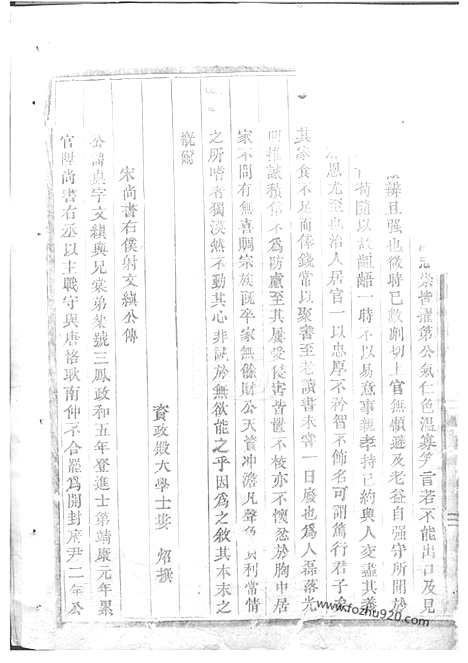 崇皆擢第公氣仁色溫寡笑言若不能出口及見
辨且强也從時已救劘切上官無頓遜及老益自强守所聞於
苟隨以故齟齬一時不以易意事親孝持已約與人交盡其義
恩尤至也治人居官一以忠厚不矜智不飾名可謂篤行君子
其家食不足而俸錢常以聚書至老讀書未嘗一日廢也爲人磊落光
明推誠積信不爲防慮至其屢受侵害皆置不校亦不懷忿於胸中居
家不問有無喜賙宗族旣卒家無餘財公天資冲澹凡聲色 利常情
之所嗜者獨漠然不動其心非誠於無欲能之乎因爲之敘其本末之
槪爾
宋尚書右僕射文縝公傳
資政殿大學士婁 炤撰
公諱㮚字文縝與兄棠弟榘號三鳳政和五年登進士第靖康元年累
官陞尚書右丞以主戰守與唐恪耿南仲不合罷爲開封府尹二年公
www.fozhu920.com